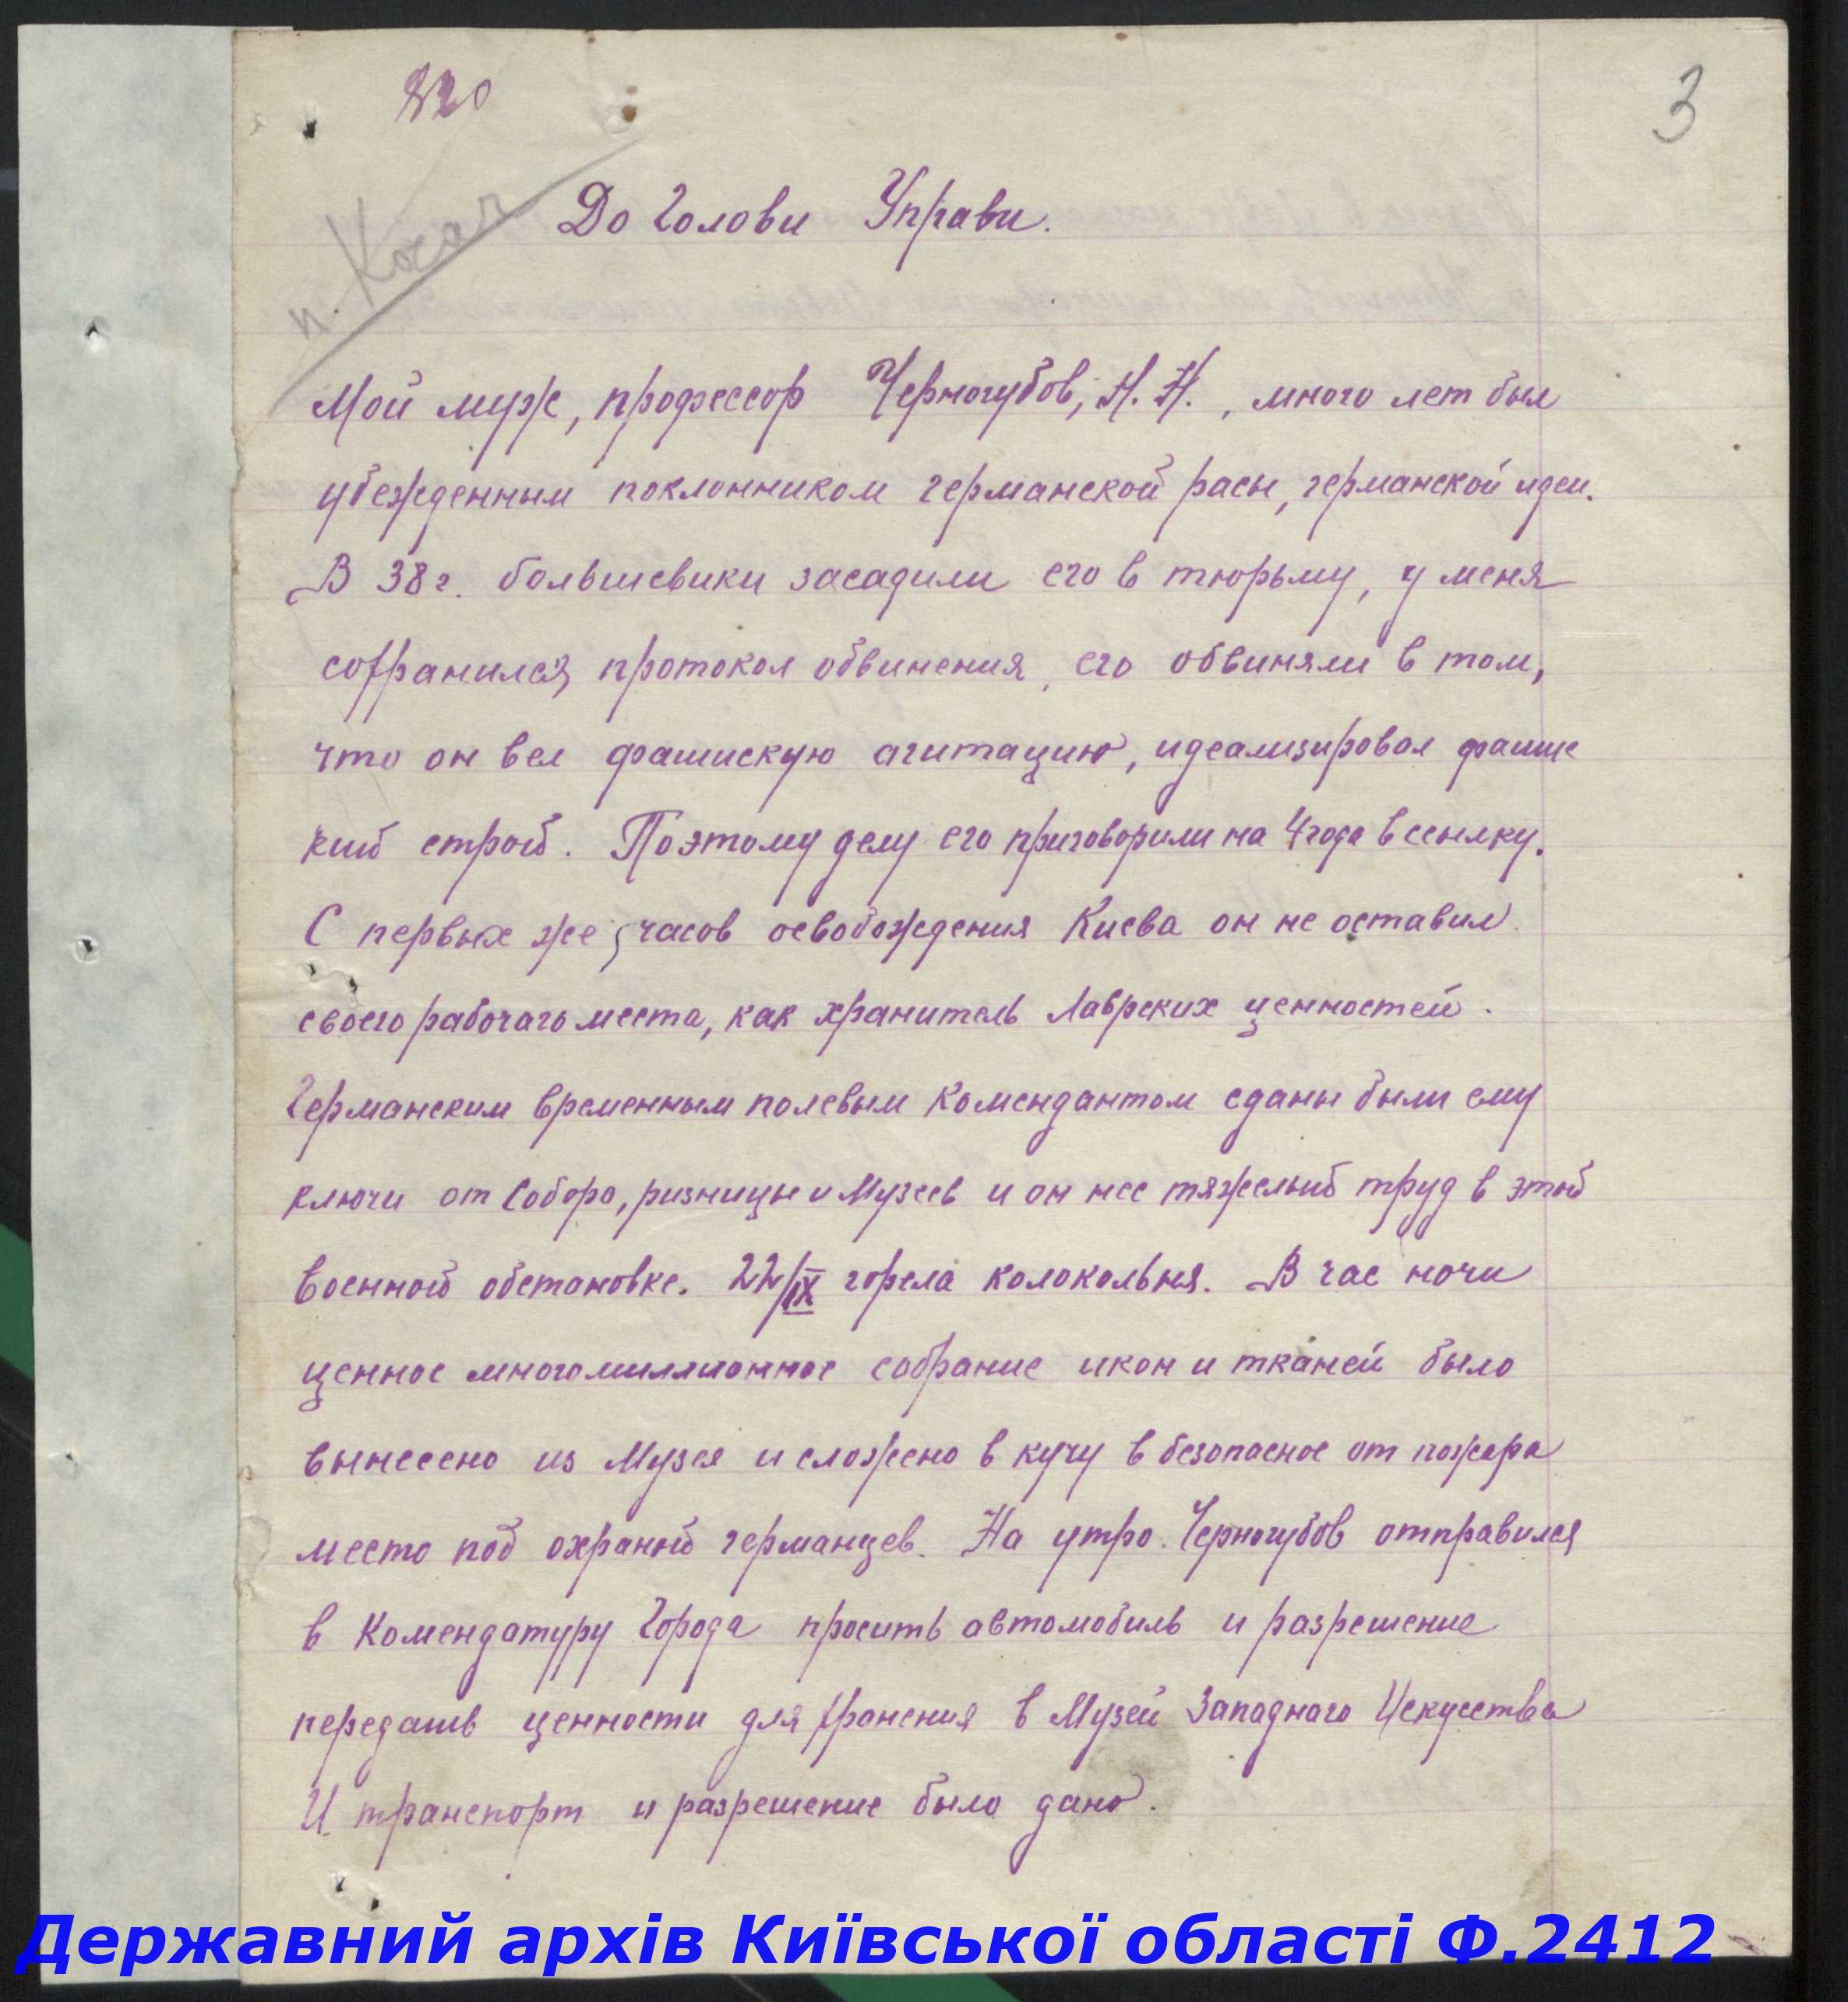 820
3
п. Косач
До Голови Управи.
Мой муж, профессор Черногубов, Н. Н., много лет был
убежденным поклонником германской расы, германской идеи.
В 38 г. большевики засадили его в тюрьму, у меня
сохранился протокол обвинения, его обвиняли в том,
что он вел фашискую агитацию, идеализировал фашис
кий строй. Поэтому делу его приговорили на 4 года в ссылку.
С первых же часов освобождения Киева он не оставил
своего рабочаго места, как хранитель Лаврских ценностей.
Германским временным полевым комендантом сданы были ему
ключи от Собора, ризницы и Музеев и он нес тяжелый труд в этой
военной обстановке. 22/IX горела колокольня. В час ночи
ценное многомиллионное собрание икон и тканей было
вынесено из Музея и сложено в кучу в безопасное от пожара
место под охраной германцев. На утро Черногубов отправился
в Комендатуру Города просить автомобиль и разрешение
передать ценности для хранения в Музей Западного Искусства
И транспорт и разрешение было дано.
Державний архів Київської області Ф.2412